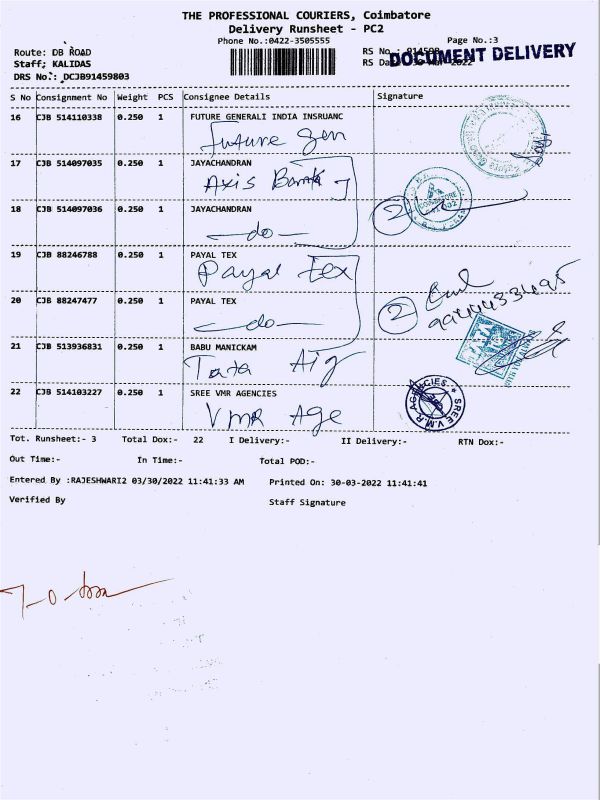 THE PROFESSIONAL COURIERS, Coimbatore
Delivery Runsheet - PC2
Phone No.:0422-3505555
Page No.:3
Route: DB ROAD
RS No.:
DOCUMENT DELIVERY
Staff; KALIDAS
RS Da
DRS No.: DCJB91459803
S No Consignment No Weight PCS Consignee Details Signature
16 CJB 514110338 0.250 1 FUTURE GENERALI INDIA INSRUANC
Future Gen
17 CJB 514097035 0.250 1 JAYACHANDRAN
Axis Bank
18 CJB 514097036 0.250 1 JAYACHANDRAN
2
COIMBATORE
-do-
19 CJB 88246788 0.250 1 PAYAL TEX
Payal tex
20 CJB 88247477 0.250 1 PAYAL TEX
2
-do-
21 CJB 513936831 0.250 1 BABU MANICKAM
Tata Aig
22 CJB 514103227 0.250 1 SREE VMR AGENCIES
SREE V.M.R. AGENCIES
VMR Age
Tot. Runsheet:- 3 Total Dox:- 22 I Delivery:- II Delivery:- RTN Dox:-
Out Time:- In Time:- Total POD:-
Entered By :RAJESHWARI2 03/30/2022 11:41:33 AM Printed On: 30-03-2022 11:41:41
Verified By Staff Signature